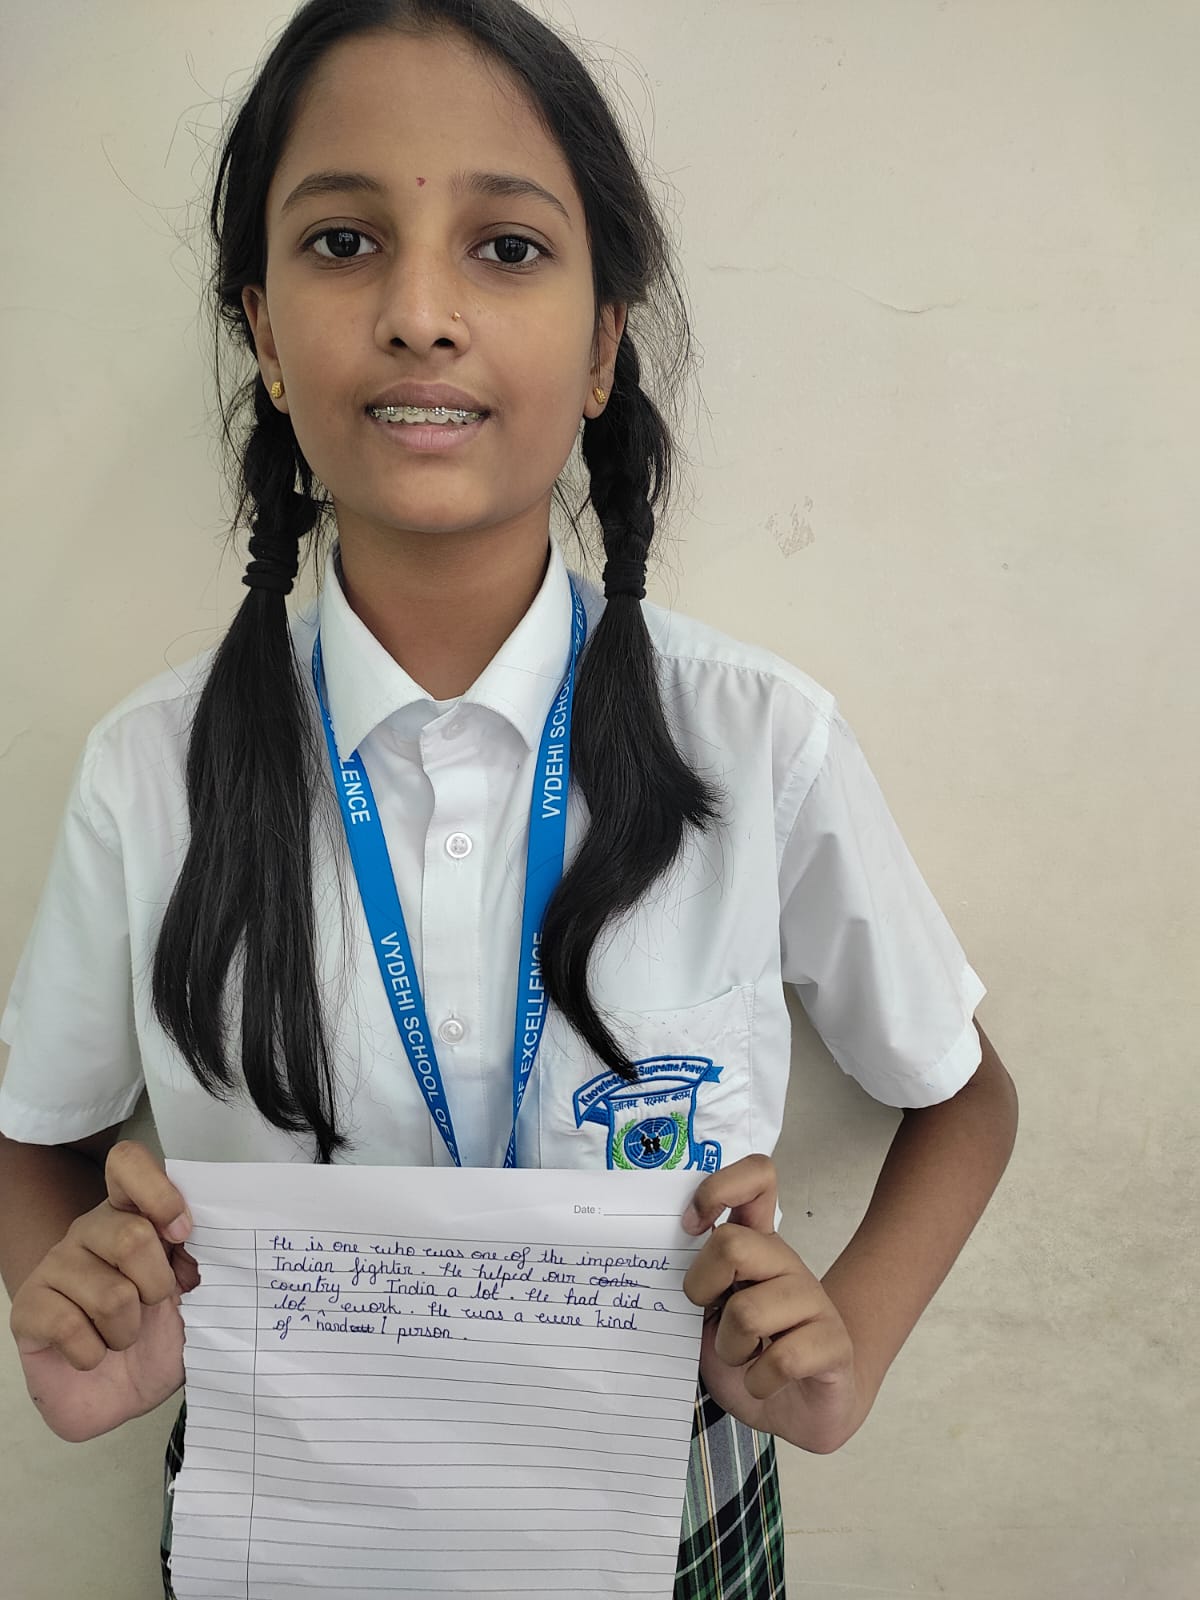 LENCE
VYDEHI SCHOOL OF EXC
VYDEHI SCHOOL OF E
OF EXCELLENCE
Knowledge is Supreme Power
ज्ञानम परमम बलम
NCE
Date :
He is one who was one of the important
Indian fighter. He helped our contr
country India a lot. He had did a
lot work. He was a were kind
of ^ hard person.